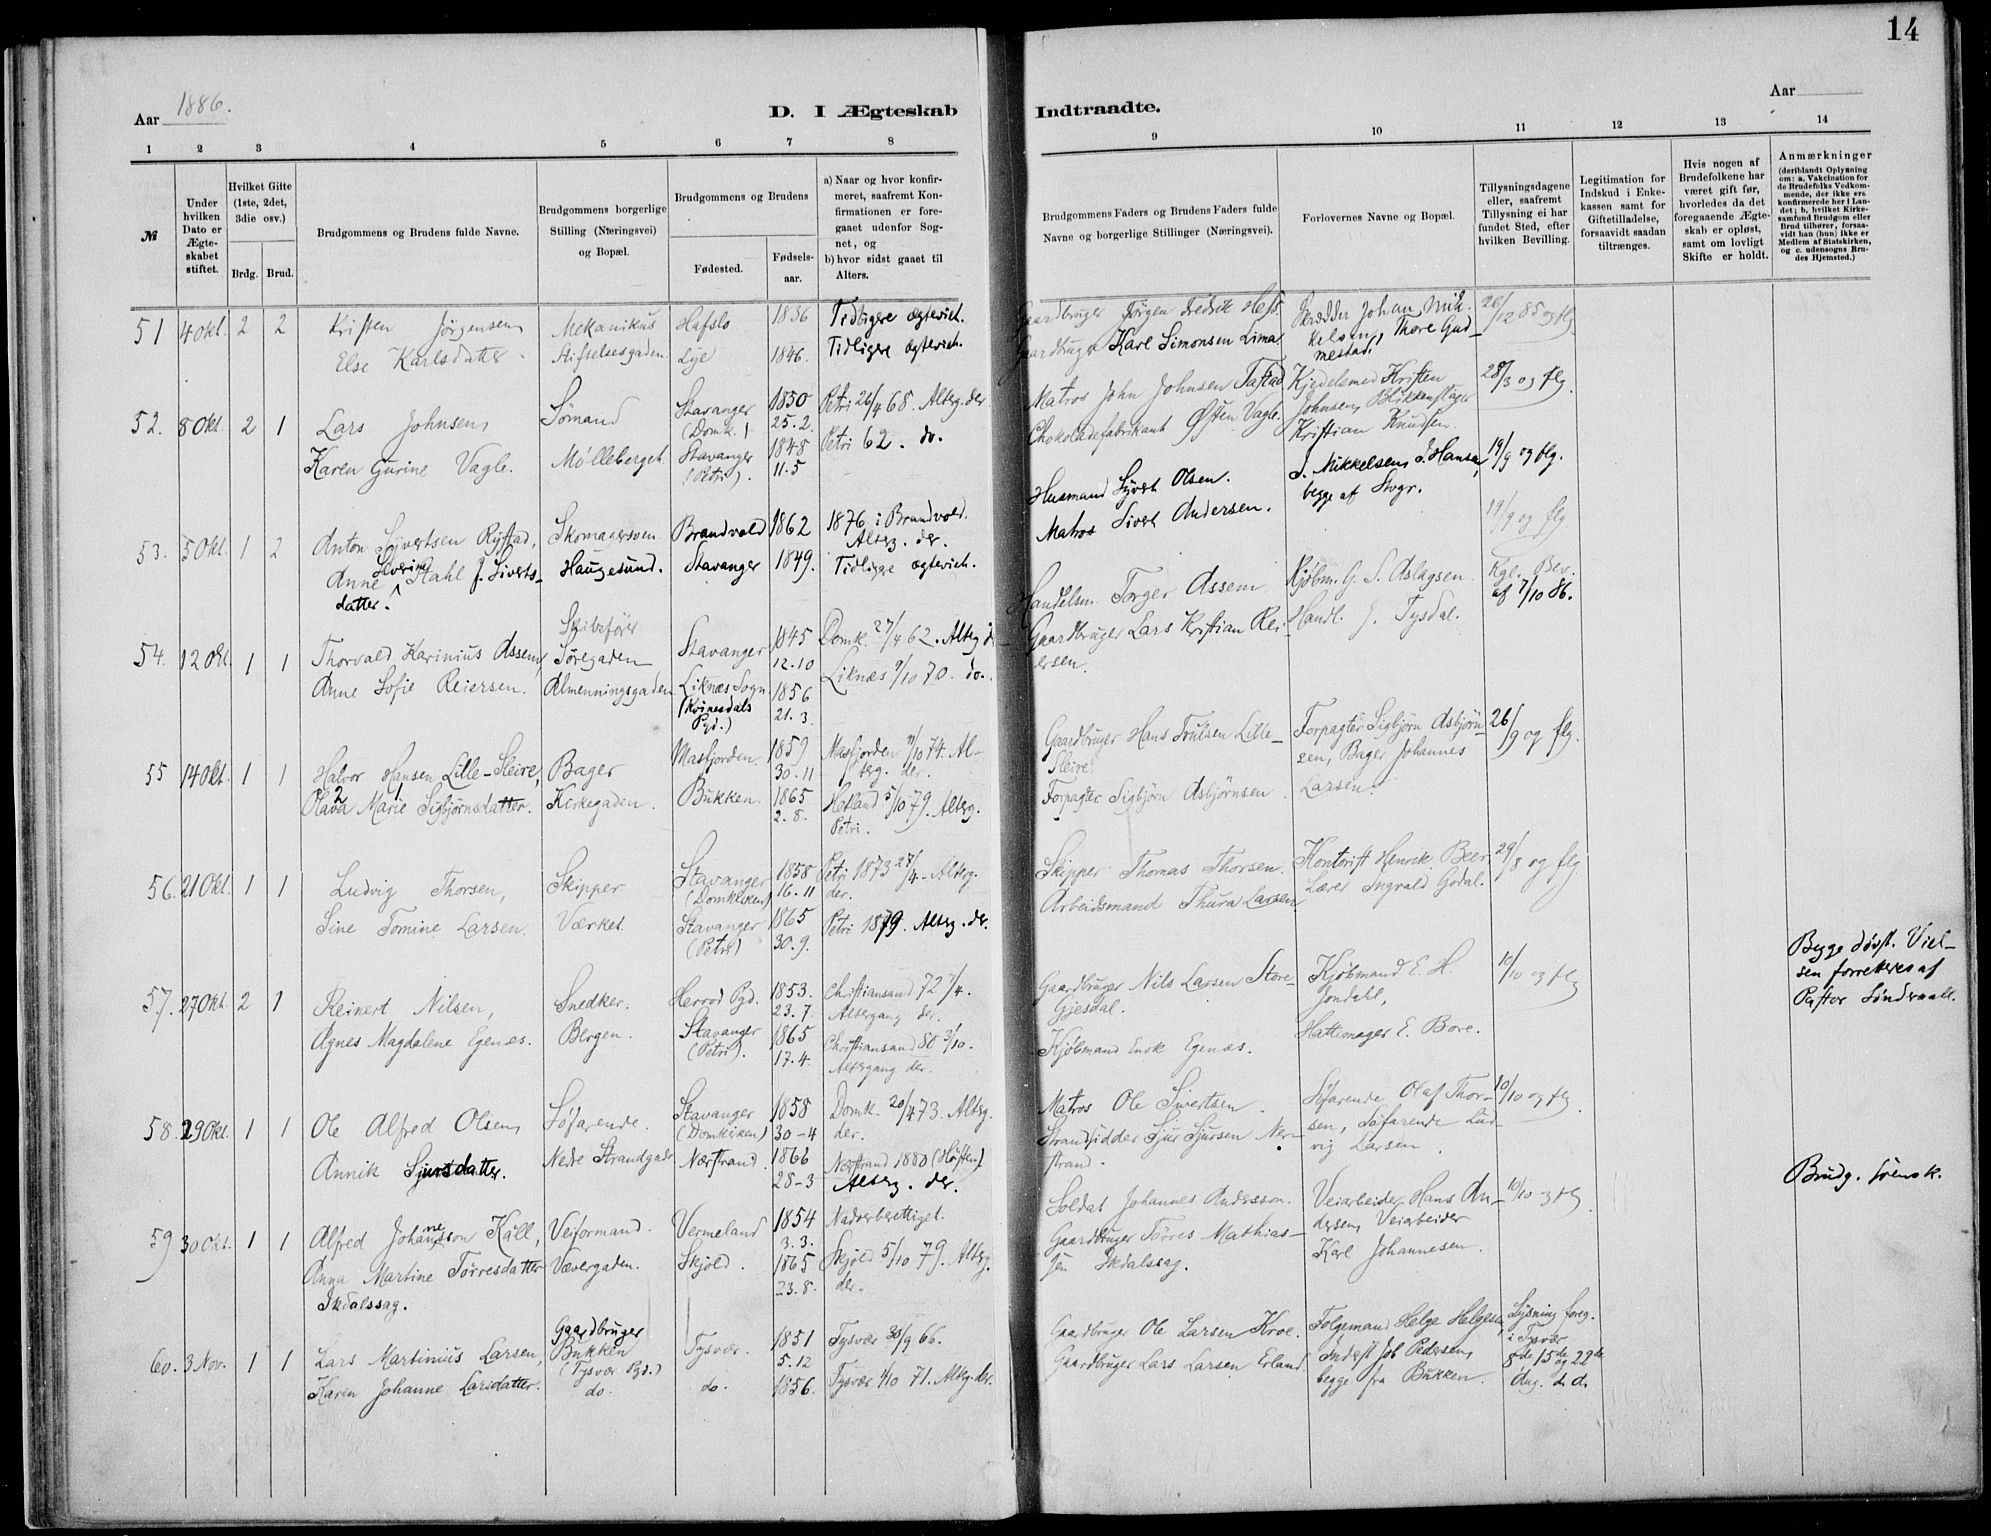 14
Aar 1886.
Aar
D. I Ægteskab Indtraadte.
1 2 3 4 5 6 7 8 9 10 11 12 13 14
№
Under hvilken Dato er Ægteskabet stiftet.
Hvilket Gifte (1ste, 2det, 3die osv.)
Brdg. Brud.
Brudgommens og Brudens fulde Navne.
Brudgommens borgerlige Stilling (Næringsvei) og Bopæl.
Brudgommens og Brudens
Fødested. Fødsels-aar.
a) Naar og hvor konfirmeret, saafremt Konfirmationen er foregaaet udenfor Sognet, og
b) hvor sidst gaaet til Alters.
Brudgommens Faders og Brudens Faders fulde Navne og borgerlige Stillinger (Næringsvei).
Forlovernes Navne og Bopæl.
Tillysningsdagene eller, saafremt Tillysning ei har fundet Sted, efter hvilken Bevilling.
Legitimation for Indskud i Enkekassen samt for Giftetilladelse, forsaavidt saadan tiltrænges.
Hvis nogen af Brudefolkene har været gift før, hvorledes da det foregaaende Ægteskab er opløst, samt om lovligt Skifte er holdt.
Anmærkninger (deriblandt Oplysning om: a. Vakcination for de Brudefolks Vedkommende, der ikke ere konfirmerede her i Landet; b. hvilket Kirkesamfund Brudgom eller Brud tilhører, forsaavidt han (hun) ikke er Medlem af Statskirken, og c. udensogns Brudes Hjemsted.)
51 4 Okt. 2 2 Kristen Jørgensen, Mekanikus Hafslo 1836 Tidligere ægteviet. Gaardbruger Jørgen Fredrik Skrædder Johan Mik- 26/12 85 og flg.
Else Karlsdatter. Stiftelsesgaden Lye 1846. Tidligere ægteviet. Gaardbruger Karl Simonsen Lima. kelsen, Thore Gud-
mestad.
52. 8 Okt. 2 1 Lars Johnsen, Sømand Stavanger (Domk.) 1850 25.2. Petri 26/4 68. Alterg. der Matros John Johnsen Tastad Kjedelsmed Kristen 28/3 og flg.
Karen Gurine Vagle. Møllebergeh. Stavanger (Petri). 1848 11.5 Petri 62. do. Chokoladefabrikant Østen Vagle. Johnsen, Blikkenslager
Kristian Knudsen.
53. 5 Okt. 1 2 Anton Syvertsen Rystad, Skomagersven Brandvold 1862 1876 i Brandvold. Alterg. der. Husmand Syvert Olsen. S. Mikkelsen, I. Hansen, 19/9 og flg.
Anne Severine Stahl f. Siverts- Haugesund. Stavanger 1849. Tidligere ægteviet. Matros Sivert Andersen. begge af Stvgr. 19/9 og flg
datter.
54. 12 Okt. 1 1 Thorvald Karinius Assem, Skibsfører Søregaden Stavanger 1845 12.10 Domk. 27/4 62. Alterg der Handelsm. Torger Assem Kjøbm. G. S. Aslagsen. Kgl. Bev.
Anne Sofie Reiersen. Almenningsgaden Liknæs Sogn (Kvinesdals Pgd.) 1856 21.3. Liknæs 9/10 70. do. Gaardbruger Lars Kristian Rei- Handl. J. Tysdal. af 7/10 86.
ersen.
55 14 Okt. 1 1 Halvor Hansen Lille-Sleire, Bager Masfjorden. 1859 30.11 Masfjorden 11/10 74. Al-
terg. der. Gaardbruger Hans Trulsen Lille- Forpagter Sigbjørn Asbjørn- 26/9 og flg.
Olava Marie Sigbjørnsdatter. Kirkegaden. Bukken. 1865 2.8. Hetland 5/10 79. Alterg. Petri. Sleire. sen, Bager Johannes
Forpagter Sigbjørn Asbjørnsen. Larsen.
56. 21 Okt. 1 1 Ludvig Thorsen, Skipper Stavanger (Domkirken) 1858 16.11 Petri 1873 27/4. Alterg. der. Skipper Thomas Thorsen. Kontorist Henrik Beer, 29/8 og flg
Sine Tomine Larsen. Værket. Stavanger (Petri) 1865 30.9. Petri 1879. Alterg. der. Arbeidsmand Thura Larsen. Lærer Ingvald Godal.
57. 27 Okt. 2 1 Reinert Nilsen, Snedker. Herrød Pgd. 1853. 23.7. Christiansand 72 7/4. Altergang der. Gaardbruger Nils Larsen Store- Kjøbmand E. H. 10/10 og flg Begge døvst. Viel-
Gjesdal. Jondahl, sen forrettedes af
Agnes Magdalene Egenæs. Bergen. Stavanger (Petri). 1865 17.4. Christiansand 80 3/10. Altergang der. Kjøbmand Enok Egenæs. Hattemager E. Bore. Pastor Søndenaal.
58. 29 Okt. 1 1 Ole Alfred Olsen, Søfarende. Stavanger (Domkirken) 1858 30-4 Domk. 20/4 73. Alterg. der. Matros Ole Sivertsen. Søfarende Olaf Thor- 10/10 og flg
Annik Sjursdatter. Nedre Strandgade Nærstrand. 1866 28-3 Nærstrand 1880 (Høsten) Alterg. der. Strandsidder Sjur Sjursen Ner- sen, Søfarende Lud-
strand. vig Larsen.
59 30 Okt. 1 1 Alfred Johannesson Käll, Veiformand. Vermeland 1854 3.3. Nadverberettiget. Soldat Johannes Andersson. Veiarbeider Hans An- 10/10 og flg Brudg. svensk.
Anna Martine Tørresdatter Vævergaden. Skjold. 1865 23.8. Skjold 5/10 79. Alterg. der. Gaardbruger Tørres Mathias- dersen, Veiarbeider
Ikdalssag. sen Ikdalssag. Karl Johannesen.
60. 3 Nov. 1 1 Lars Martinius Larsen, Gaardbruger Bukken (Tysvær Pgd.) Tysvær. 1851 5.12 Tysvær 30/9 66. Gaardbruger Ole Larsen Kroe. Folgemand Helge Helgesen, Lysning foreg.
Karen Johanne Larsdatter. do. do. 1856. Tysvær 1/10 71. Alterg. der. Gaardbruger Lars Larsen Erland. Inderst Job Pedersen, i Tysvær
begge fra Bukken. 8de 15de og 22de
Aug. d. A.